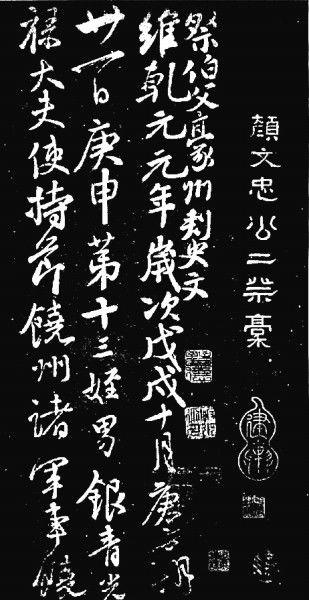 顏文忠公二祭藁
祭伯父豪州刺史文
維乾元元年歲次戊戌十月庚寅朔
廿一日庚申第十三姪男銀青光
祿大夫使持節饒州諸軍事饒